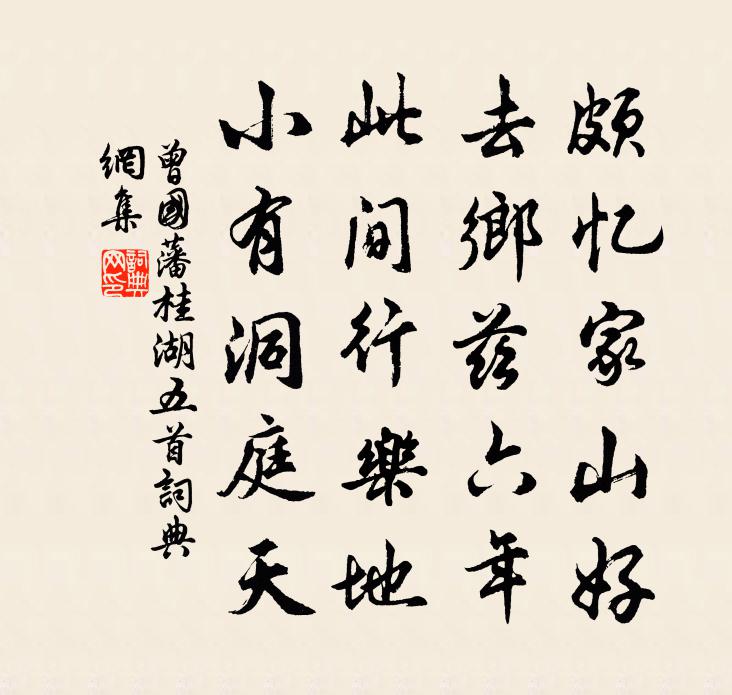 頗忆家山好
去鄉兹六年
此间行樂地
小有洞庭天
曾國藩桂湖五首詞典
網集
詞典
网印